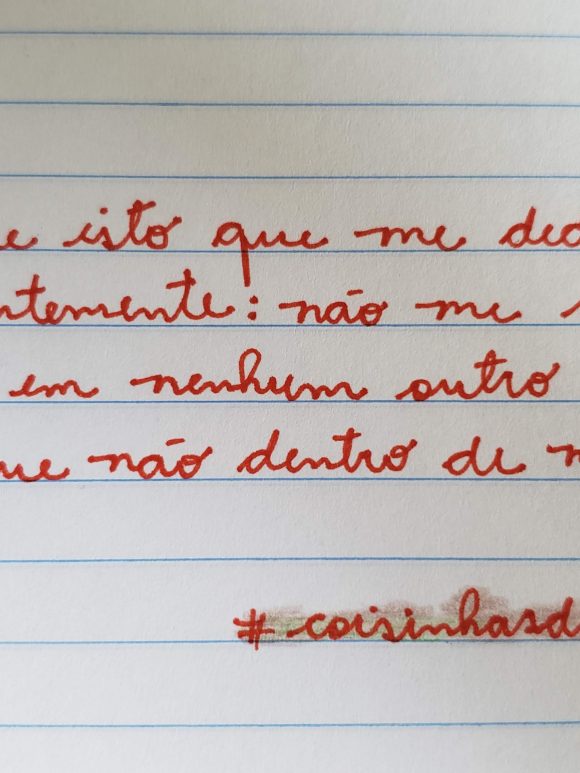 e isto que me dec
ntemente: não me
em nenhum outro
ue não dentro de m
#coisinhasd